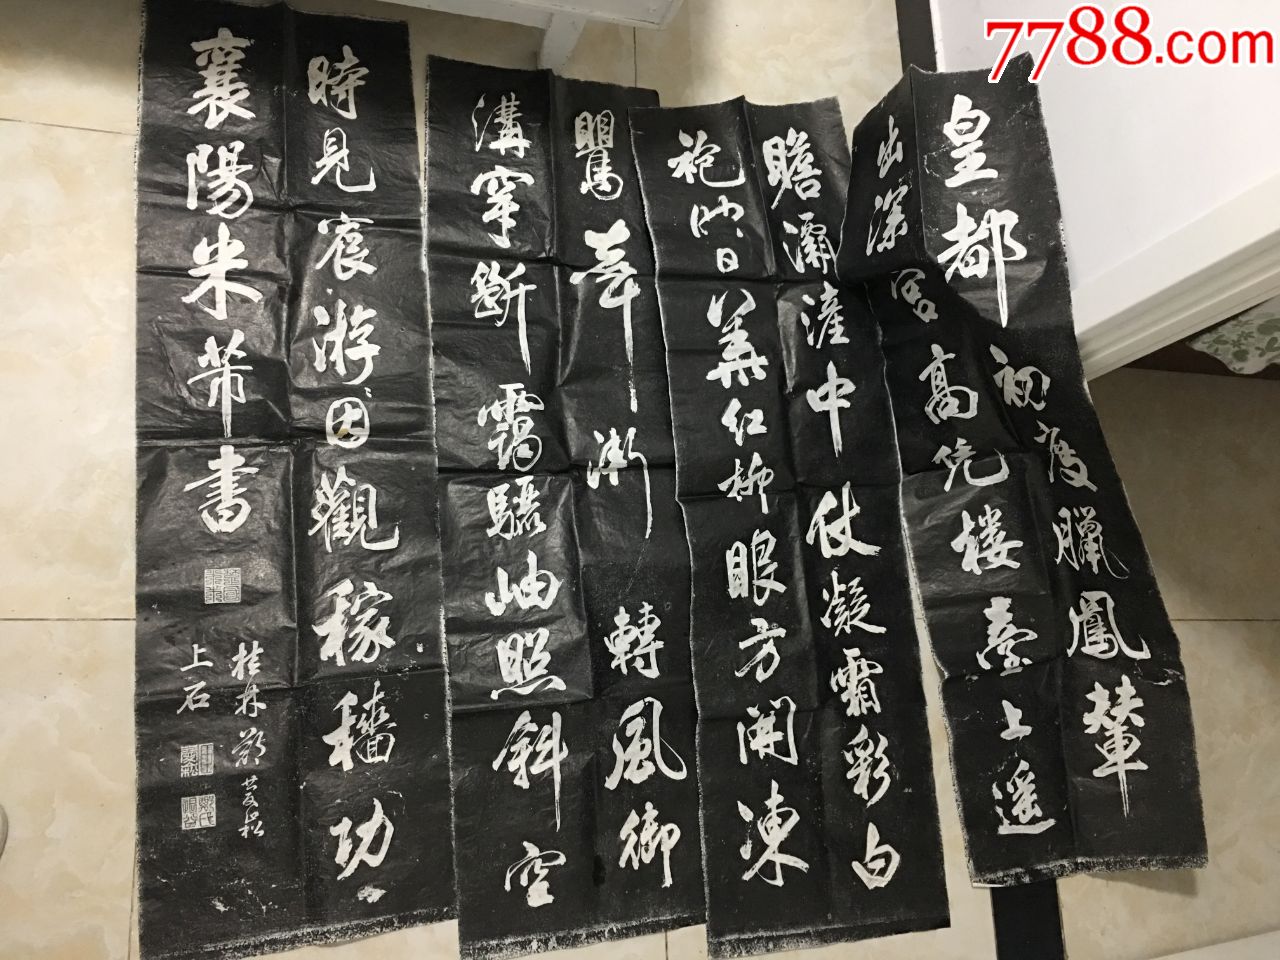 7788.com
皇都初度臘鳳輦
出深宮高凭樓臺上遥
瞻灞滻中仗凝霜彩白
袍映日華紅柳眼方開凍
鸎聲漸轉風御
溝穿斷靄驪岫照斜空
時見宸游因觀稼穡功
襄陽米芾書
桂林
上石